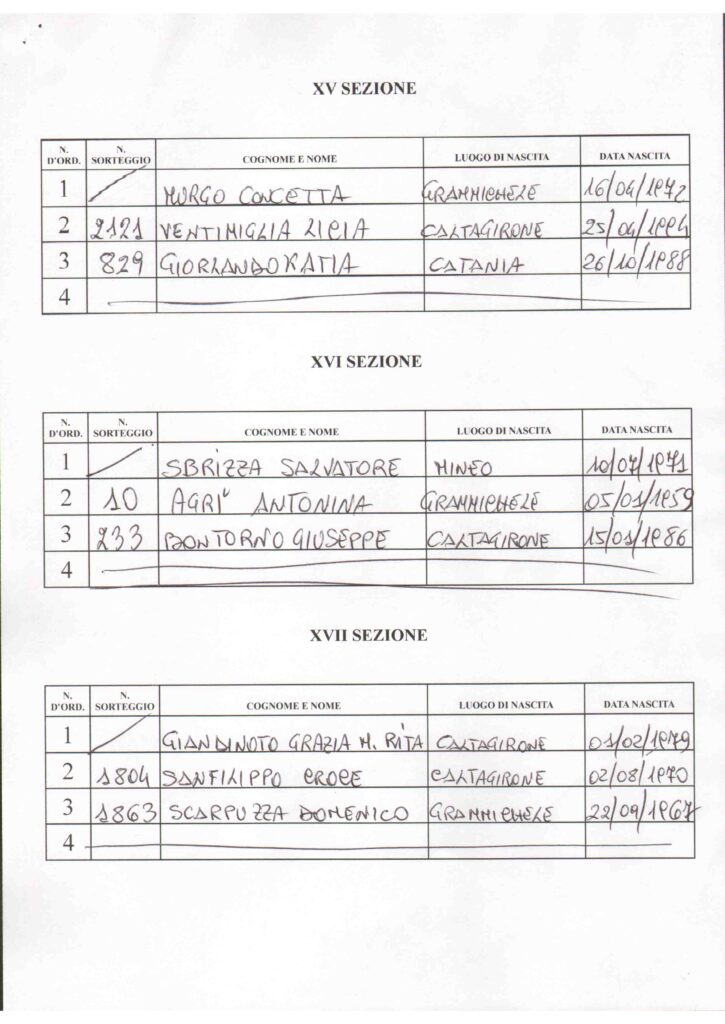 XV SEZIONE
N. D'ORD. N. SORTEGGIO COGNOME E NOME LUOGO DI NASCITA DATA NASCITA
1 MURGO CONCETTA GRAMMICHELE 16/04/1972
2 2121 VENTIMIGLIA LICIA CALTAGIRONE 25/04/1994
3 829 GIORLANDO KATIA CATANIA 26/10/1988
4
XVI SEZIONE
N. D'ORD. N. SORTEGGIO COGNOME E NOME LUOGO DI NASCITA DATA NASCITA
1 SBRIZZA SALVATORE MINEO 10/07/1971
2 10 AGRI' ANTONINA GRAMMICHELE 05/01/1959
3 233 BONTORNO GIUSEPPE CALTAGIRONE 15/01/1986
4
XVII SEZIONE
N. D'ORD. N. SORTEGGIO COGNOME E NOME LUOGO DI NASCITA DATA NASCITA
1 GIANDINOTO GRAZIA M. RITA CALTAGIRONE 01/02/1979
2 1804 SANFILIPPO CROCE CALTAGIRONE 02/08/1970
3 1863 SCARPUZZA DOMENICO GRAMMICHELE 22/09/1967
4